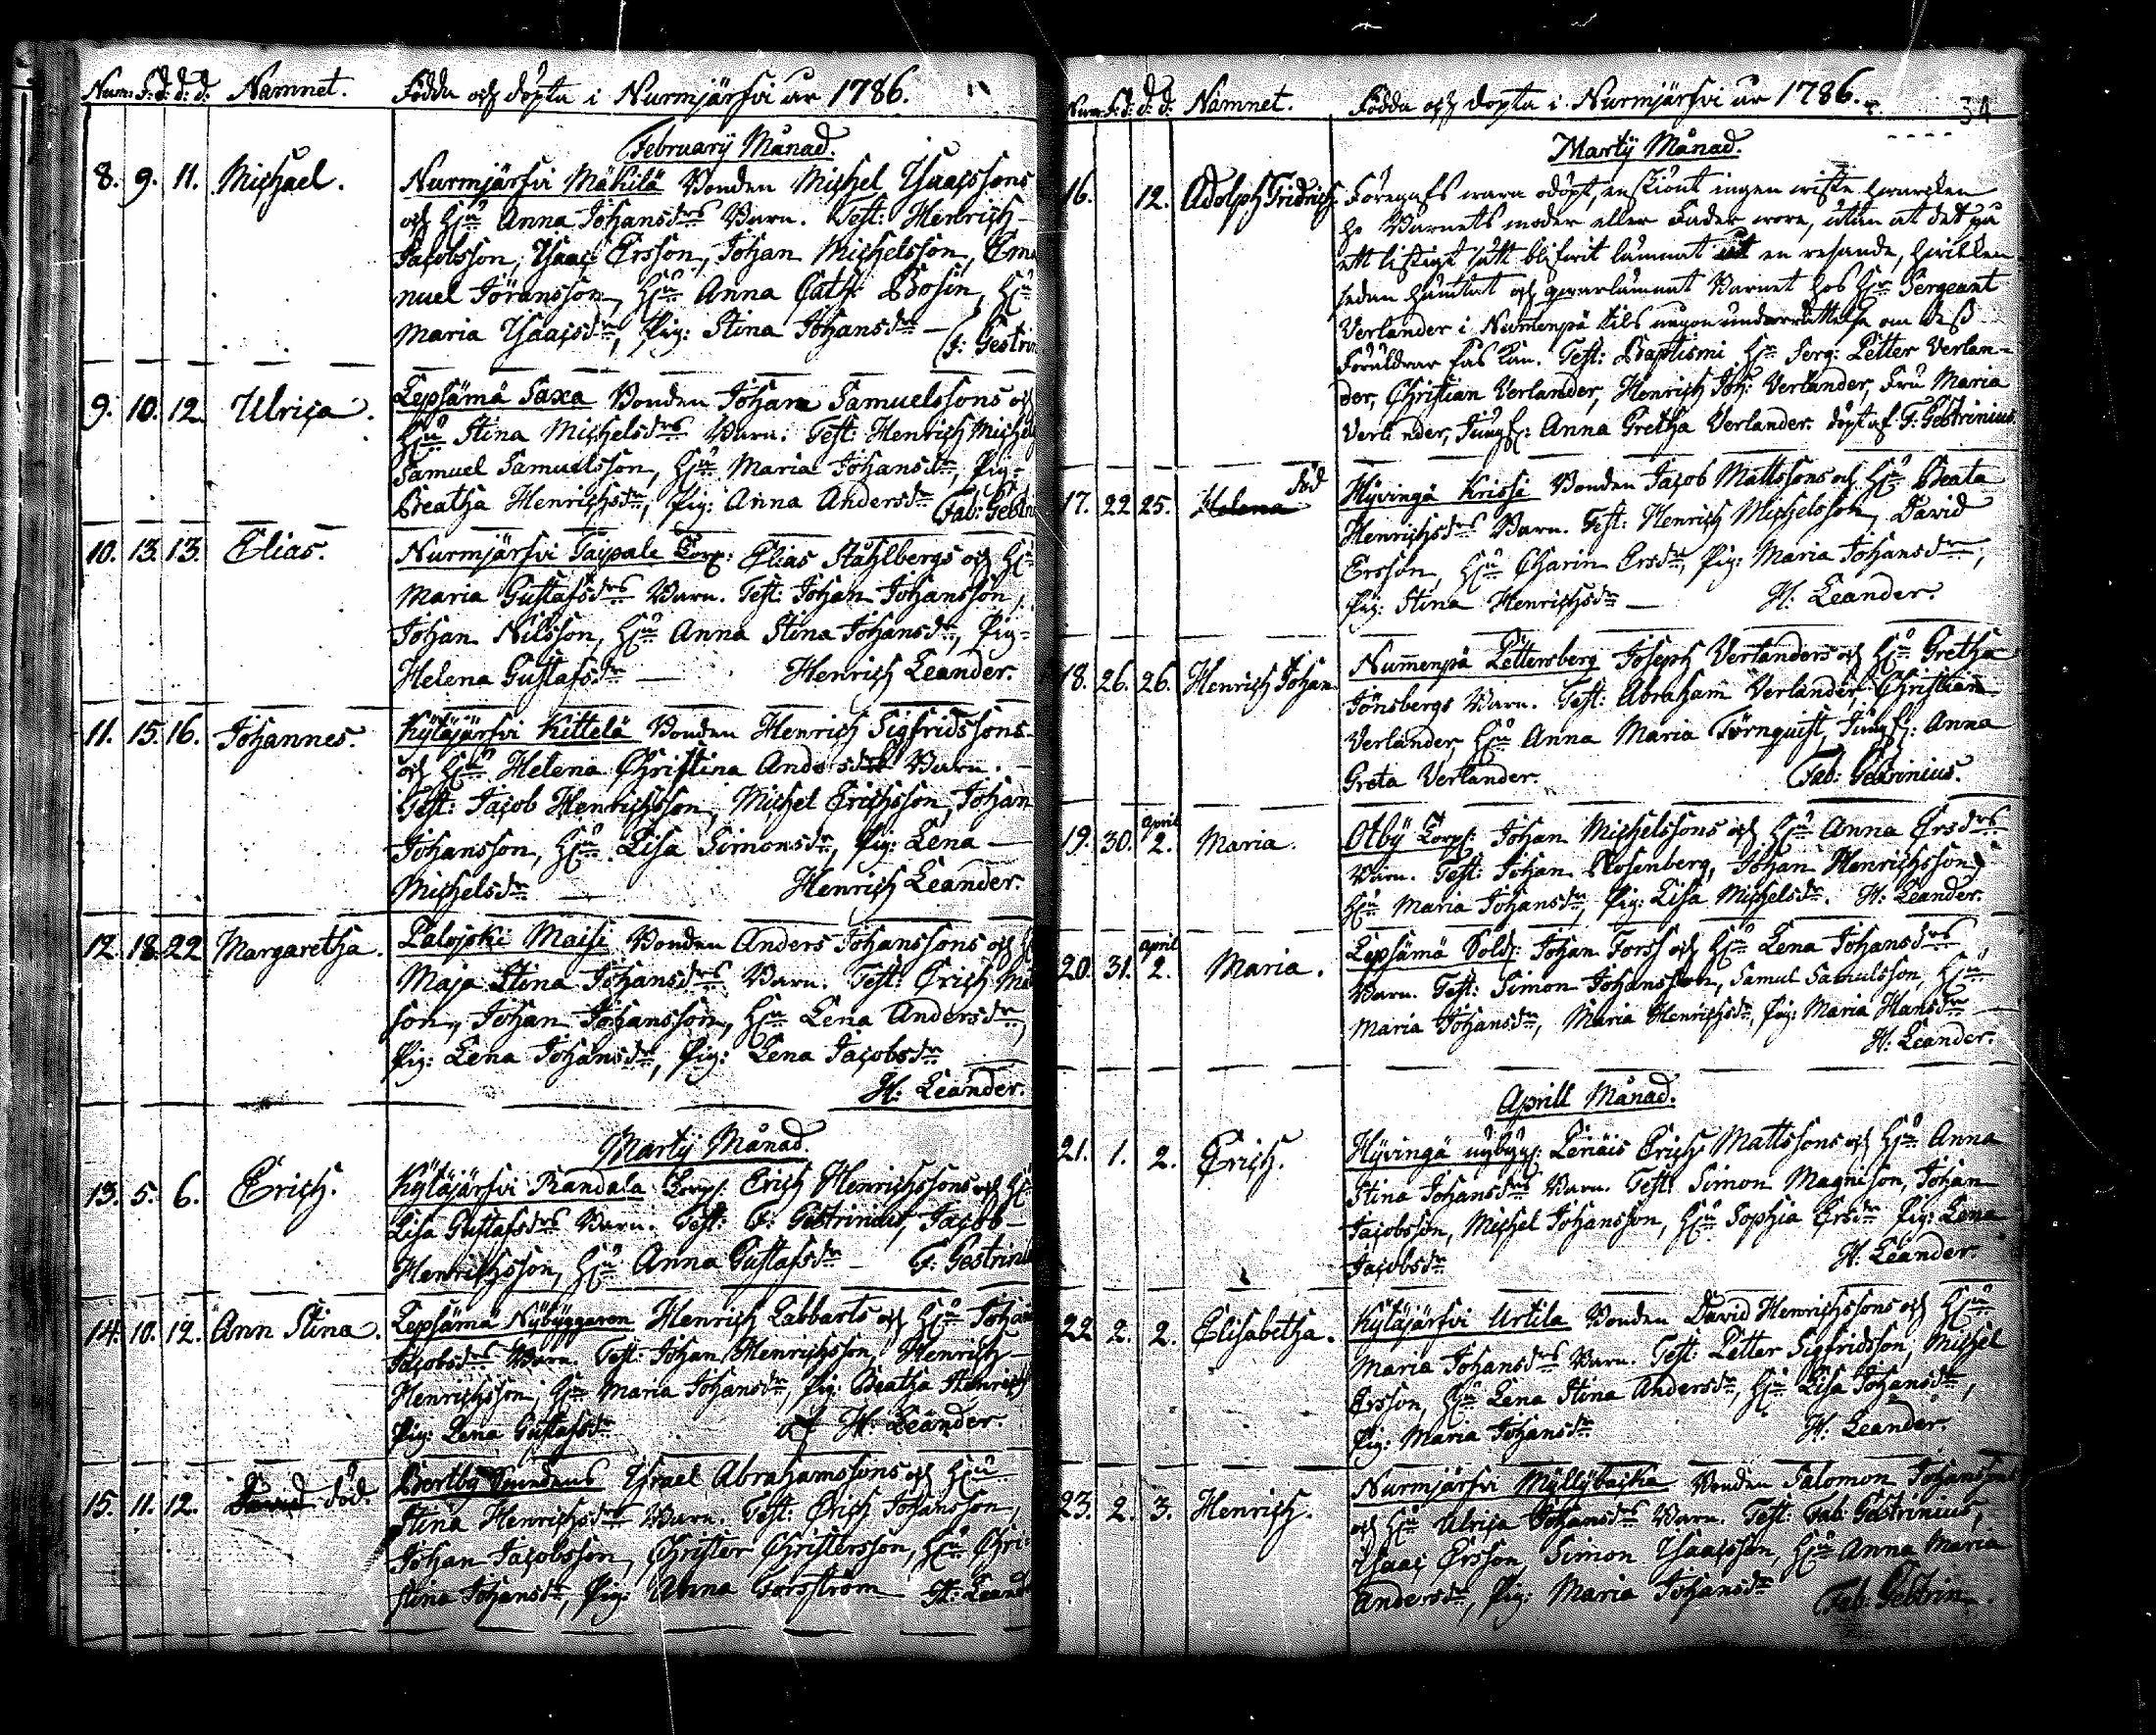 Num. F: d: d: d: Namnet. Födda och döpta i Nurmjärfvi år 1786.
February Månad.
8. 9. 11. Michael. Nurmjärfvi Mäkilä Bonden Michel Ysaacssons
och Hu Anna Johansdrs Barn. Test: Henrich
Jacobsson, Ysaac Ersson, Johan Michelsson, Ema
nuel Jöransson, Hu Anna Cath: Bosin, Hu
Maria Ysaacsdr, Pig: Stina Johansdr — F: Gestrin
9. 10. 12. Ulrica. Lepsämä Saxa Bonden Johan Samuelssons och
Hu Stina Michelsdrs Barn. Test: Henrich Michels
Samuel Samuelsson, Hu Maria Johansdr, Pig:
Beatha Henrichsdr, Pig: Anna Andersdr Fab: Gestri
10. 13. 13. Elias. Nurmjärfvi Taipale Torp: Elias Ståhlbergs och Hu
Maria Gustafsdrs Barn. Test: Johan Johansson,
Johan Nilsson, Hu Anna Stina Johansdr, Pig:
Helena Gustafsdr — Henrich Leander.
11. 15. 16. Johannes. Kytäjärfvi Kittelä Bonden Henrich Sigfridssons
och Hu Helena Christina Andersdrs Barn.
Test: Jacob Henrichsson, Michel Erichsson, Johan
Johansson, Hu Lisa Simonsdr, Pig: Lena —
Michelsdr — Henrich Leander.
12. 18. 22 Margaretha. Palojoki Maisi Bonden Anders Johanssons och H
Maja Stina Johansdrs Barn. Test: Erich Ma
son, Johan Johansson, Hu Lena Andersdr,
Pig: Lena Johansdr, Pig: Lena Jacobsdr
H: Leander.
Martij Månad.
13. 5. 6. Erich. Kytäjärfvi Randala Torp: Erich Henrichssons och Hu
Lisa Gustafsdrs Barn. Test: F: Gestrinius, Jacob —
Henrichsson, Hu Anna Gustafsdr — F: Gestrini
14. 10. 12. Ann Stina. Lepsämä Nybyggaren Henrich Labbarts och Hu Johan
Jacobsdrs Barn. Test: Johan Henrichsson, Henrich —
Henrichsson, Hu Maria Johansdr, Pig: Beatha Henrichs
Pig: Lena Gustafsdr af H: Leander.
15. 11. 12. död. Bertby Ysrael Abrahamssons och Hu
Stina Henrichsdrs Barn. Test: Erich Johansson,
Johan Jacobsson, Christer Christersson, Hu Chri-
stina Johansdr, Pig: Anna Forsström — H: Leand
Num F: d: d: d: Namnet. Födda och döpta i Nurmjärfvi år 1786. 34
Martij Månad.
16. 12. Adolph Fridrich. Föregafs vara odöpt, enskiönt ingen wiste hwarcken
ho Barnets moder eller Fader wore, utan at det på
ett listigt sätt blifwit lämnat åt en resande, hwilken
sedan hämtat och qwarlämnat Barnet hos Hr Sergeant
Verlander i Numenpä tils någon underrättelse om dess
Föräldrar fås kan. Test: Baptismi Hr Serg: Petter Verlan-
der, Christian Verlander, Henrich Joh: Verlander, Fru Maria
Verlander, Jungf: Anna Gretha Verlander. döpt af F: Gestrinius.
17. 22 25. Helena död Hyvingä Krissi Bonden Jacob Mattssons och Hu Beata
Henrichsdrs Barn. Test: Henrich Michelsson, David
Ersson, Hu Charin Ersdr, Pig: Maria Johansdr,
Pig: Stina Henrichsdr — H: Leander.
18. 26. 26. Henrich Johan. Numenpä Pettersberg Joseph Verlanders och Hu Gretha
Jönsbergs Barn. Test: Abraham Verlander, Christian
Verlander, Hu Anna Maria Törnquist, Jungf: Anna
Greta Verlander. Fab: Gestrinius.
19. 30. April 2. Maria. Otby Torp: Johan Michelssons och Hu Anna Ersdrs
Barn. Test: Johan Rosenberg, Johan Henrichsson,
Hu Maria Johansdr, Pig: Lisa Michelsdr. H: Leander.
20. 31. April 2. Maria. Lepsämä Sold: Johan Forss och Hu Lena Johansdrs
Barn. Test: Simon Johansson, Samuel Samuelsson, Hu
Maria Johansdr, Maria Henrichsdr, Pig: Maria Hansdr —
H: Leander.
Aprill Månad.
21. 1. 2. Erich. Hyvingä nybygg: Erich Mattssons och Hu Anna
Stina Johansdrs Barn. Test: Simon Magnisson, Johan
Jacobsson, Michel Johansson, Hu Sophia Ersdr Pig: Lena
Jacobsdr H: Leander.
22 2. 2. Elisabetha. Kytäjärfvi Urtila Bonden David Henrichssons och Hu
Maria Johansdrs Barn. Test: Petter Sigfridsson, Michel
Ersson, Hu Lena Stina Andersdr, Hu Lisa Johansdr,
Pig: Maria Johansdr H: Leander.
23. 2. 3. Henrich. Nurmjärfvi Myllybacka Bonden Salomon Johanssons
och Hu Ulrica Johansdrs Barn. Test: Fab: Gestrinius,
Ysaac Ersson, Simon Ysaacsson, Hu Anna Maria
Andersdr, Pig: Maria Johansdr Fab: Gestrin